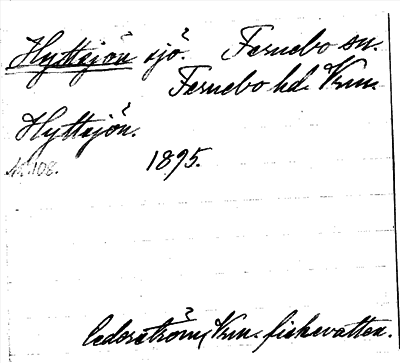 Hyttsjön sjö. Fernebo sn.
Fernebo hd. Vrm.
Hyttsjön.
1895.
Cederström, Vrm. fiskevatten.